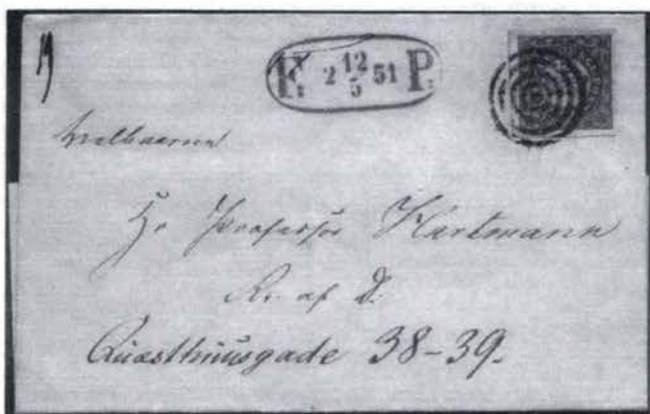 F: 2 12/5 51 P:
Velbaarne
Hr Professor Hartmann
R. af D.
Quæsthuusgade 38-39.